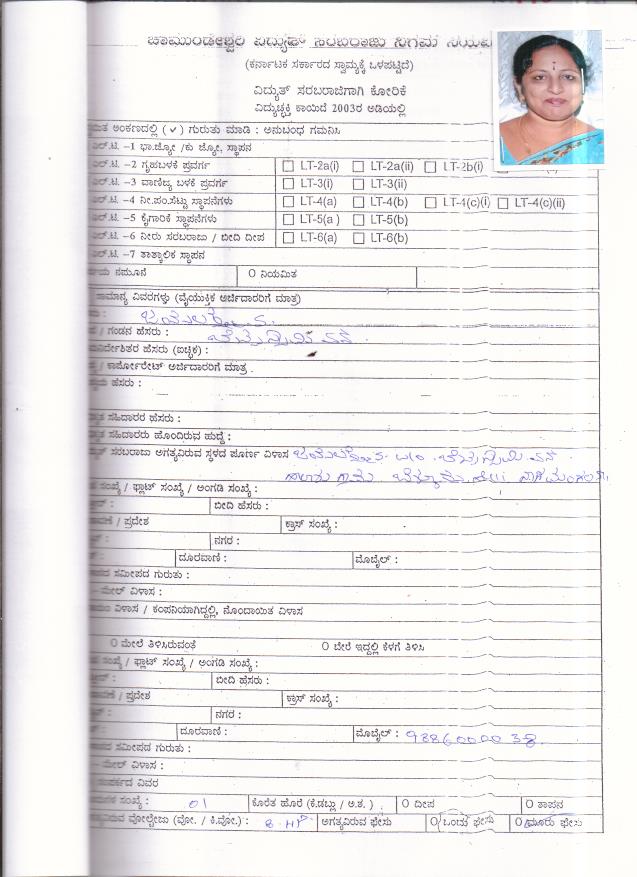 ಚಾಮುಂಡೇಶ್ವರಿ ವಿದ್ಯುತ್ ಸರಬರಾಜು ನಿಗಮ
(ಕರ್ನಾಟಕ ಸರ್ಕಾರದ ಸ್ವಾಮ್ಯಕ್ಕೆ ಒಳಪಟ್ಟಿದೆ)
ವಿದ್ಯುತ್ ಸರಬರಾಜಿಗಾಗಿ ಕೋರಿಕೆ
ವಿದ್ಯುಚ್ಛಕ್ತಿ ಕಾಯಿದೆ 2003ರ ಅಡಿಯಲ್ಲಿ
ಅಂಕಣದಲ್ಲಿ ( ✓ ) ಗುರುತು ಮಾಡಿ : ಅನುಬಂಧ ಗಮನಿಸಿ
ಎಲ್.ಟಿ. –1 ಭಾ.ಜ್ಯೋ /ಕು ಜ್ಯೋ, ಸ್ಥಾಪನ
ಎಲ್.ಟಿ. –2 ಗೃಹಬಳಕೆ ಪ್ರವರ್ಗ LT-2a(i) LT-2a(ii) LT-2b(i)
ಎಲ್.ಟಿ. –3 ವಾಣಿಜ್ಯ ಬಳಕೆ ಪ್ರವರ್ಗ LT-3(i) LT-3(ii)
ಎಲ್.ಟಿ. –4 ನೀ.ಪಂ.ಸೆಟ್ಟು ಸ್ಥಾಪನೆಗಳು LT-4(a) LT-4(b) LT-4(c)(i) LT-4(c)(ii)
ಎಲ್.ಟಿ. –5 ಕೈಗಾರಿಕೆ ಸ್ಥಾಪನೆಗಳು LT-5(a ) LT-5(b)
ಎಲ್.ಟಿ. –6 ನೀರು ಸರಬರಾಜು / ಬೀದಿ ದೀಪ LT-6(a) LT-6(b)
ಎಲ್.ಟಿ. –7 ತಾತ್ಕಾಲಿಕ ಸ್ಥಾಪನ
ನಮೂನೆ O ನಿಯಮಿತ
ಸಾಮಾನ್ಯ ವಿವರಗಳು (ವೈಯುಕ್ತಿಕ ಅರ್ಜಿದಾರರಿಗೆ ಮಾತ್ರ)
/ ಗಂಡನ ಹೆಸರು :
ಹೆಸರು (ಐಚ್ಛಿಕ) :
/ ಕಾರ್ಪೋರೇಟ್ ಅರ್ಜಿದಾರರಿಗೆ ಮಾತ್ರ
ಹೆಸರು :
ಸಹಿದಾರರ ಹೆಸರು :
ಸಹಿದಾರರು ಹೊಂದಿರುವ ಹುದ್ದೆ :
ಸರಬರಾಜು ಅಗತ್ಯವಿರುವ ಸ್ಥಳದ ಪೂರ್ಣ ವಿಳಾಸ
ಸಂಖ್ಯೆ / ಫ್ಲಾಟ್ ಸಂಖ್ಯೆ / ಅಂಗಡಿ ಸಂಖ್ಯೆ :
ಬೀದಿ ಹೆಸರು :
/ ಪ್ರದೇಶ ಕ್ರಾಸ್ ಸಂಖ್ಯೆ :
ನಗರ :
ದೂರವಾಣಿ : ಮೊಬೈಲ್ :
ಸಮೀಪದ ಗುರುತು :
– ಮೇಲ್ ವಿಳಾಸ :
ವಿಳಾಸ / ಕಂಪನಿಯಾಗಿದ್ದಲ್ಲಿ, ನೊಂದಾಯಿತ ವಿಳಾಸ
O ಮೇಲೆ ತಿಳಿಸಿರುವಂತೆ O ಬೇರೆ ಇದ್ದಲ್ಲಿ ಕೆಳಗೆ ತಿಳಿಸಿ
ಸಂಖ್ಯೆ / ಫ್ಲಾಟ್ ಸಂಖ್ಯೆ / ಅಂಗಡಿ ಸಂಖ್ಯೆ :
ಬೀದಿ ಹೆಸರು :
/ ಪ್ರದೇಶ ಕ್ರಾಸ್ ಸಂಖ್ಯೆ :
ನಗರ :
ದೂರವಾಣಿ : ಮೊಬೈಲ್ : 9886000038
ಸಮೀಪದ ಗುರುತು :
– ಮೇಲ್ ವಿಳಾಸ :
ಸಂಪರ್ಕದ ವಿವರ
ಸಂಖ್ಯೆ : 01 ಕೊರೆತ ಹೊರೆ (ಕೆ.ಡಬ್ಲು / ಅ.ಶ. ) O ದೀಪ O ತಾಪನ
ವೋಲ್ಟೇಜು (ವೋ. / ಕಿ.ವೋ.) : 8 HP ಅಗತ್ಯವಿರುವ ಫೇಸು O ಒಂದು ಫೇಸು O ಮೂರು ಫೇಸು